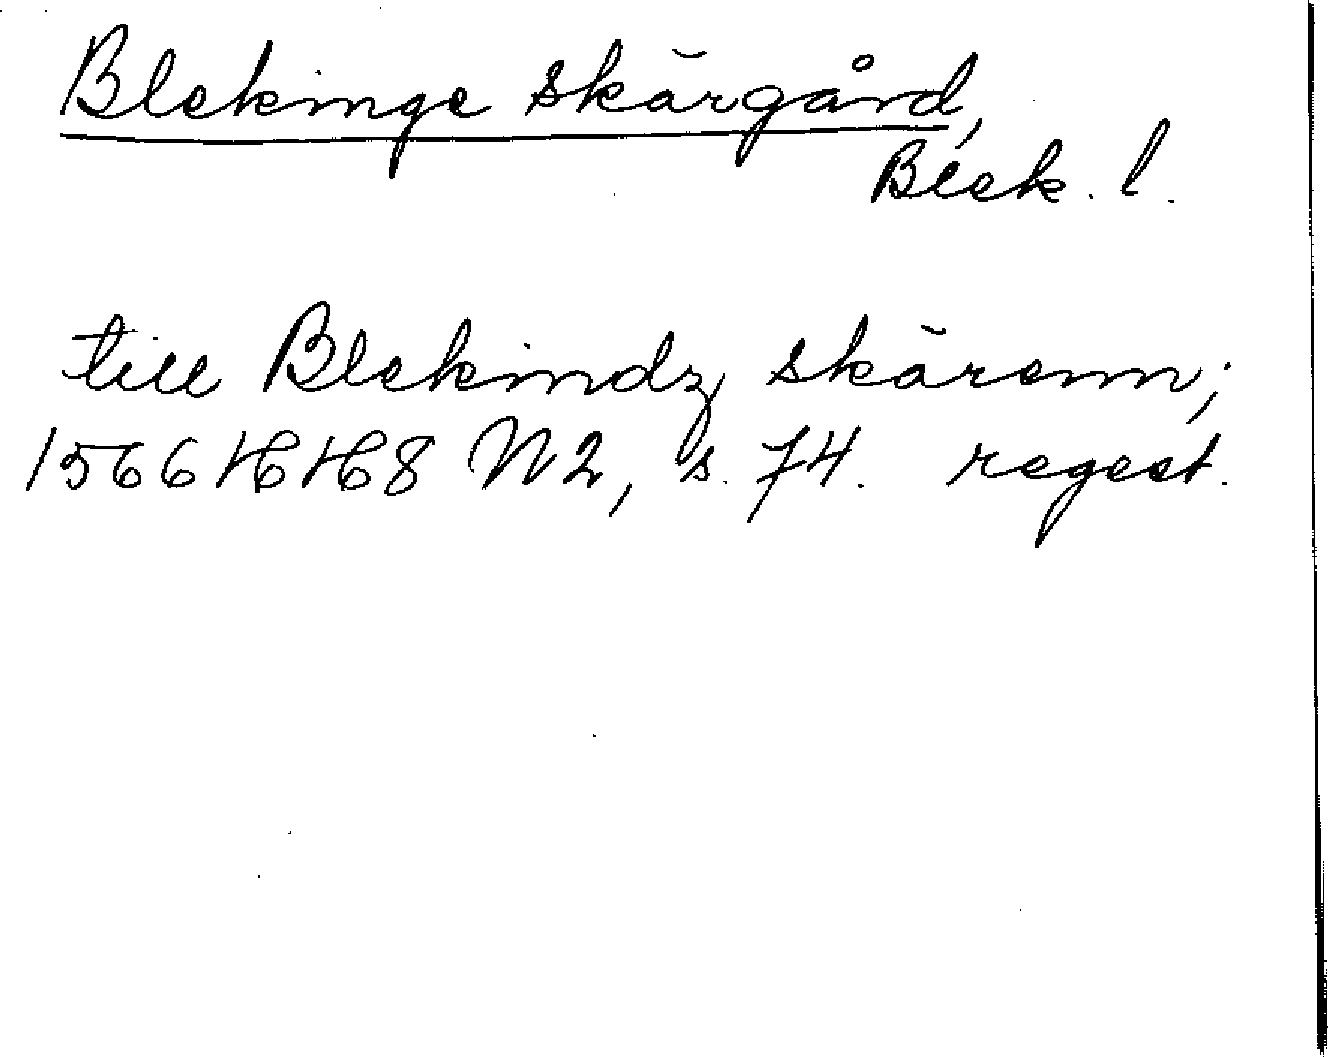 Blekinge skärgård,
Blek. l.
till Blekindz skärenn;
1566 HH8 N2, s. 74. regest.